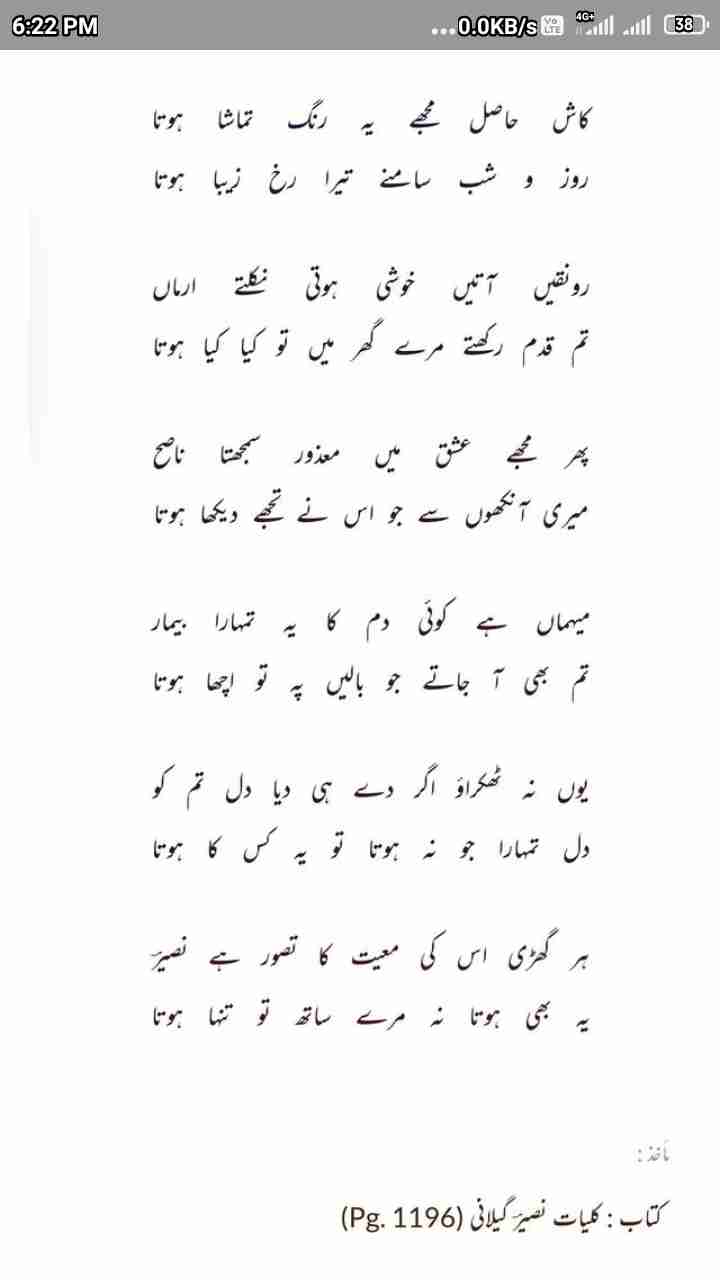 6:22 PM ...0.0KB/s Vo LTE 4G+ 38
کاش حاصل مجھے یہ رنگ تماشا ہوتا
روز و شب سامنے تیرا رخ زیبا ہوتا
رونقیں آتیں خوشی ہوتی نکلتے ارماں
تم قدم رکھتے مرے گھر میں تو کیا کیا ہوتا
پھر مجھے عشق میں معذور سمجھتا ناصح
میری آنکھوں سے جو اس نے تجھے دیکھا ہوتا
میہماں ہے کوئی دم کا یہ تمہارا بیمار
تم بھی آ جاتے جو بالیں پہ تو اچھا ہوتا
یوں نہ ٹھکراؤ اگر دے ہی دیا دل تم کو
دل تمہارا جو نہ ہوتا تو یہ کس کا ہوتا
ہر گھڑی اس کی معیت کا تصور ہے نصیرؔ
یہ بھی ہوتا نہ مرے ساتھ تو تنہا ہوتا
مآخذ :
کتاب : کلیات نصیرؔ گیلانی (Pg. 1196)